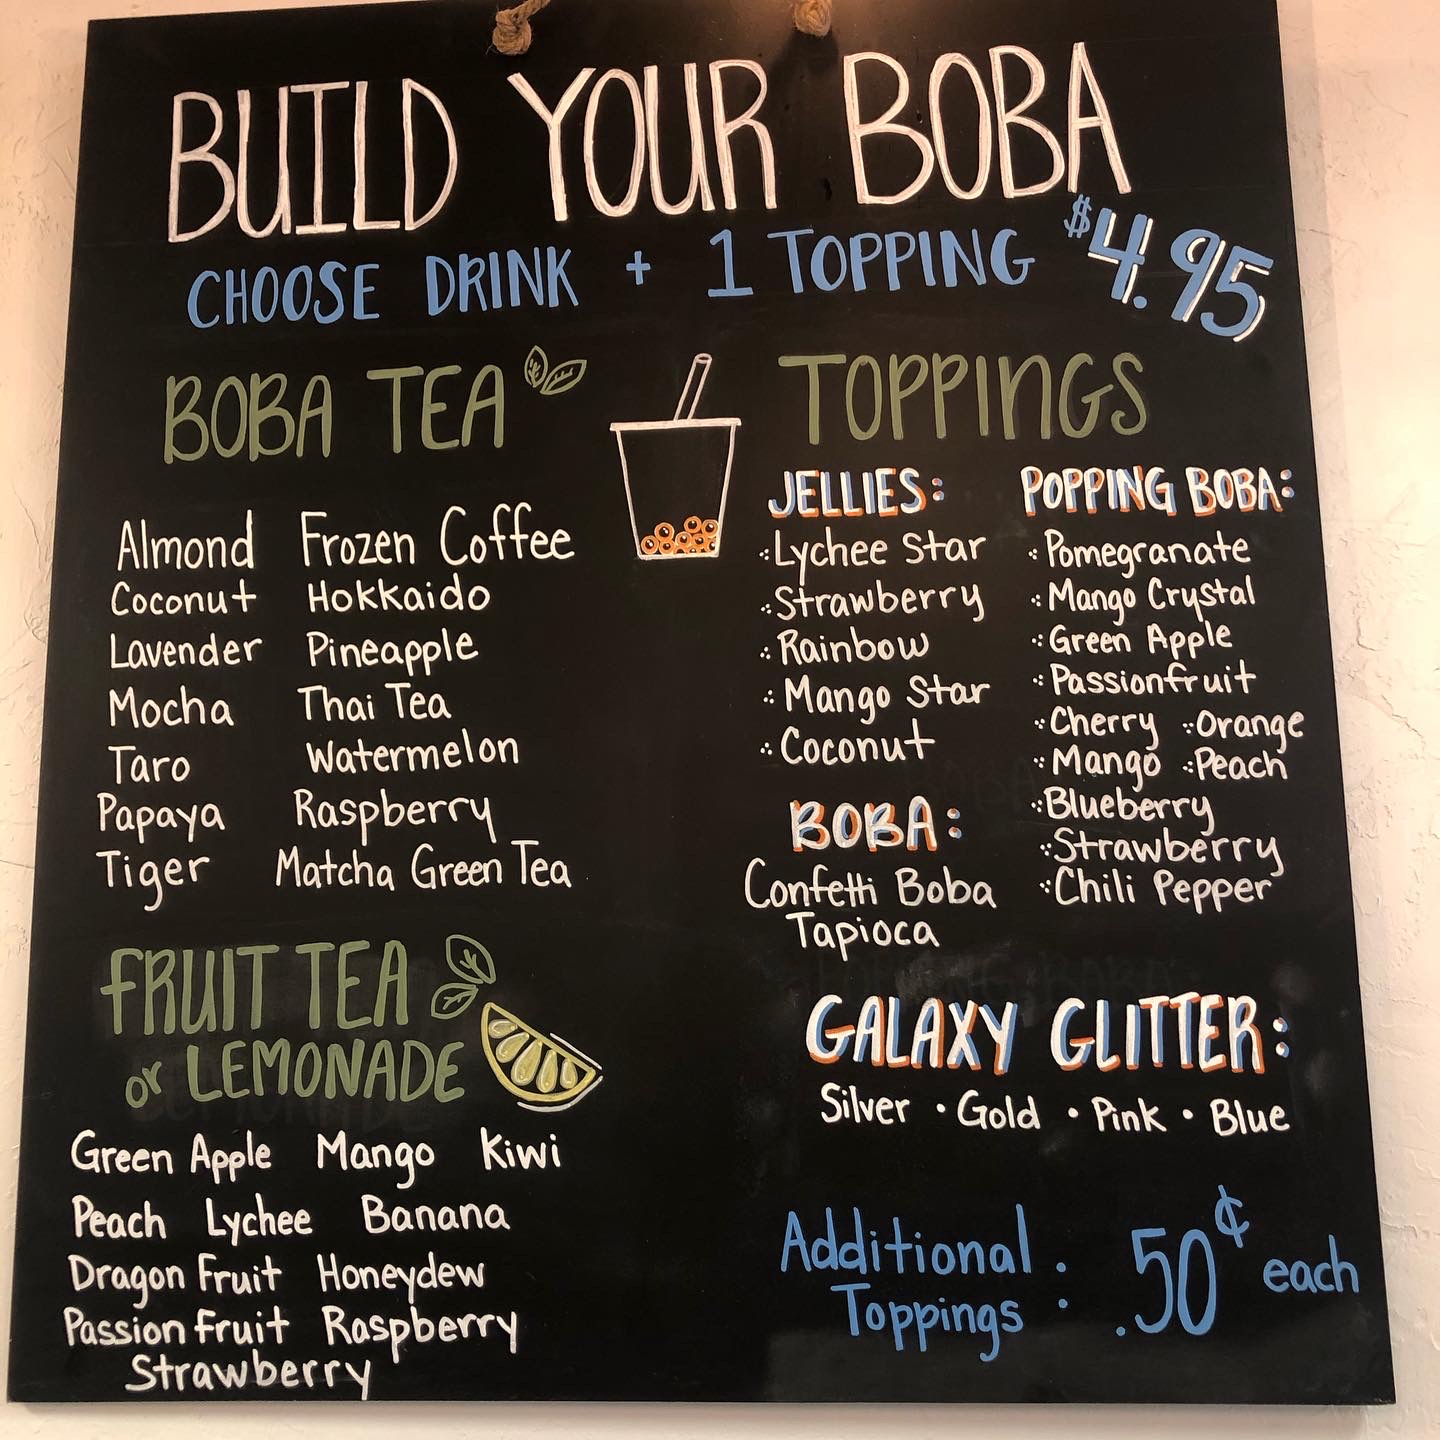 BUILD YOUR BOBA
CHOOSE DRINK + 1 TOPPING $4.95
BOBA TEA
Almond Frozen Coffee
Coconut Hokkaido
Lavender Pineapple
Mocha Thai Tea
Taro Watermelon
Papaya Raspberry
Tiger Matcha Green Tea
FRUIT TEA
or LEMONADE
Green Apple Mango Kiwi
Peach Lychee Banana
Dragon Fruit Honeydew
Passion Fruit Raspberry
Strawberry
TOPPINGS
JELLIES:
Lychee Star
Strawberry
Rainbow
Mango Star
Coconut
BOBA:
Confetti Boba
Tapioca
POPPING BOBA:
Pomegranate
Mango Crystal
Green Apple
Passionfruit
Cherry Orange
Mango Peach
Blueberry
Strawberry
Chili Pepper
GALAXY GLITTER:
Silver • Gold • Pink • Blue
Additional
Toppings : .50¢ each